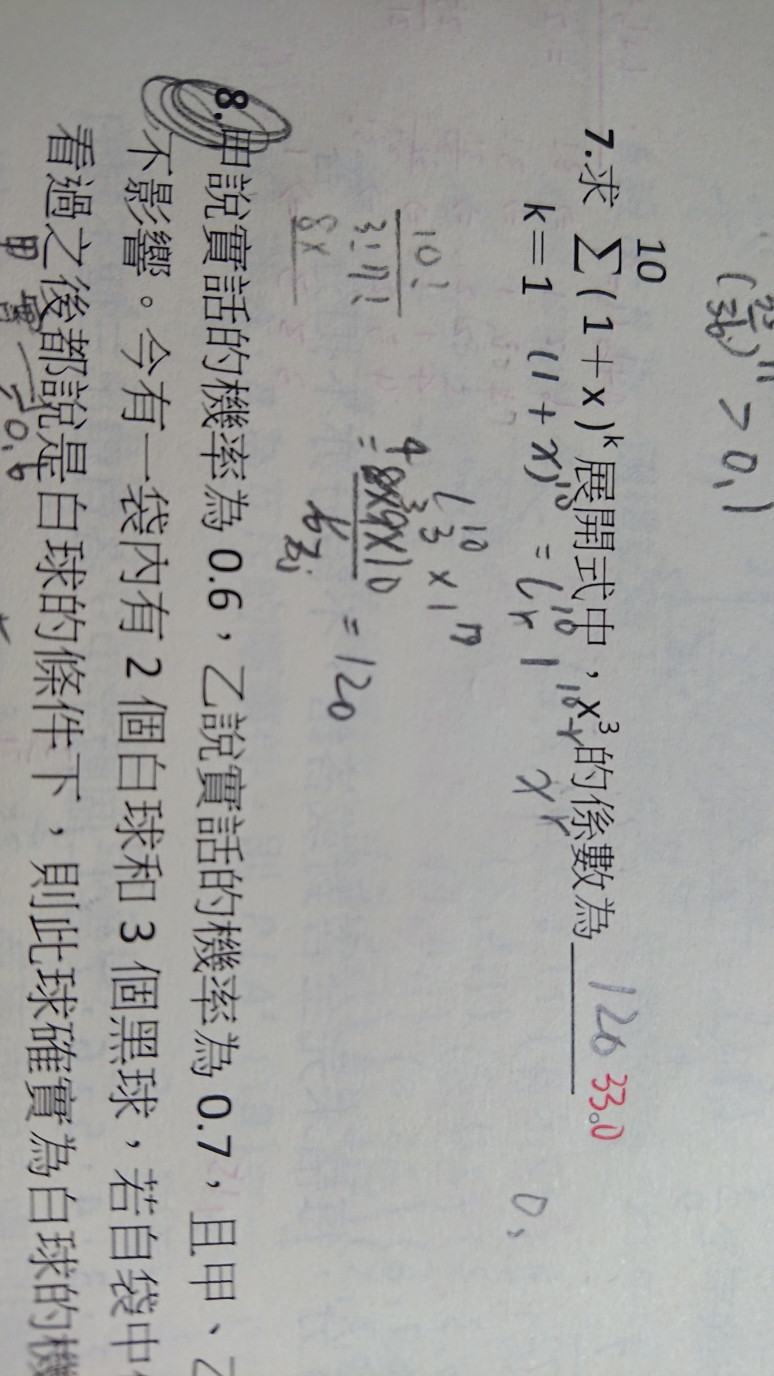 (35/36)^11 > 0,1
7.求 10∑k=1 (1+x)^k 展開式中，x³的係數為 120 330
(1+x)^10 = C^10_r 1^10-r x^r
0,
C^10_3 × 1^7
10!/3!7! = 8×9×10 = 120
8×
8.甲說實話的機率為 0.6，乙說實話的機率為 0.7，且甲、乙
不影響。今有一袋內有 2 個白球和 3 個黑球，若自袋中
看過之後都說是白球的條件下，則此球確實為白球的機
甲 實 = 0.6